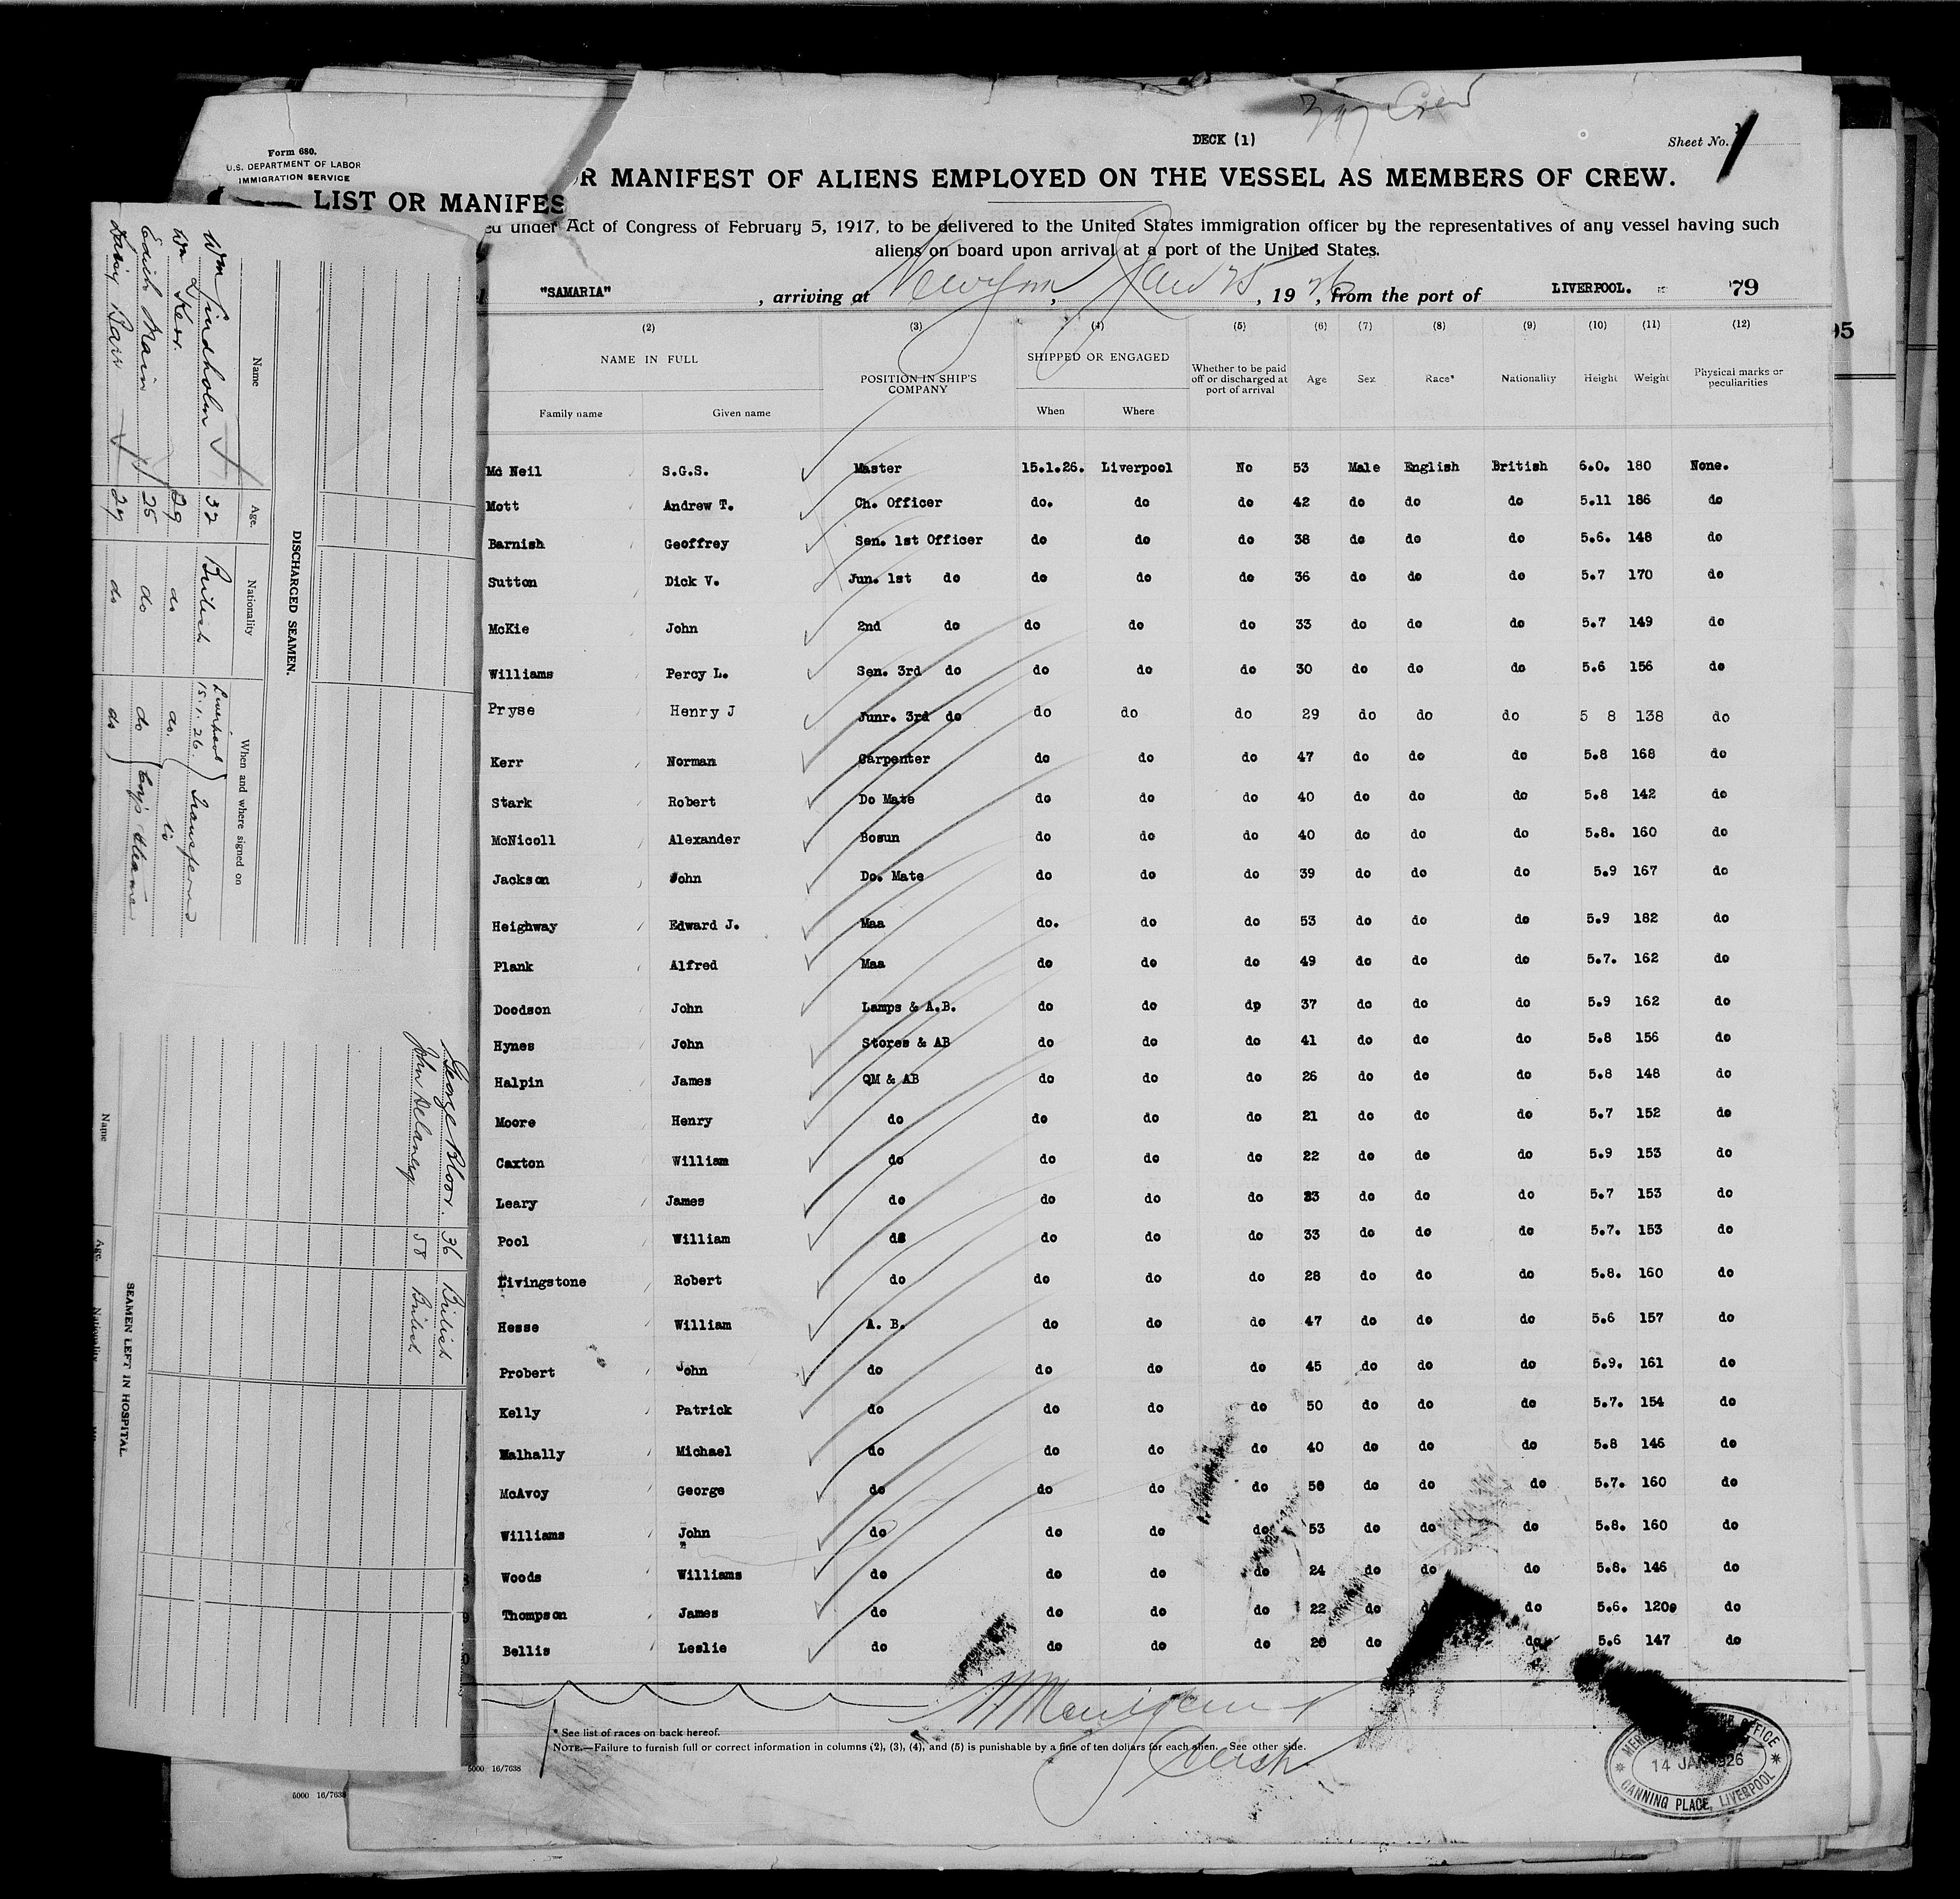 Form 680.
U.S. DEPARTMENT OF LABOR
IMMIGRATION SERVICE
LIST OR MANIFES
Crew
DECK (1)
Sheet No. 1
OR MANIFEST OF ALIENS EMPLOYED ON THE VESSEL AS MEMBERS OF CREW.
ed under Act of Congress of February 5, 1917, to be delivered to the United States immigration officer by the representatives of any vessel having such
aliens on board upon arrival at a port of the United States.
"SAMARIA" , arriving at New York , Jan 25 , 19 26 , from the port of LIVERPOOL. 79
95
(2) (3) (4) (5) (6) (7) (8) (9) (10) (11) (12)
NAME IN FULL POSITION IN SHIP'S COMPANY SHIPPED OR ENGAGED Whether to be paid off or discharged at port of arrival Age Sex Race* Nationality Height Weight Physical marks or peculiarities
Family name Given name When Where
Mc Neil S.G.S. Master 15.1.26. Liverpool No 53 Male English British 6.0. 180 None.
Mott Andrew T. Ch. Officer do. do do 42 do do do 5.11 186 do
Barnish Geoffrey Sen. 1st Officer do do do 38 do do do 5.6. 148 do
Sutton Dick V. Jun. 1st do do do do 36 do do do 5.7 170 do
McKie John 2nd do do do do 33 do do do 5.7 149 do
Williams Percy L. Sen. 3rd do do do do 30 do do do 5.6 156 do
Pryse Henry J Junr. 3rd do do do do 29 do do do 5 8 138 do
Kerr Norman Carpenter do do do 47 do do do 5.8 168 do
Stark Robert Do Mate do do do 40 do do do 5.8 142 do
McNicoll Alexander Bosun do do do 40 do do do 5.8. 160 do
Jackson John Do. Mate do do do 39 do do do 5.9 167 do
Heighway Edward J. Maa do. do do 53 do do do 5.9 182 do
Plank Alfred Maa do do do 49 do do do 5.7. 162 do
Doodson John Lamps & A.B. do do do 37 do do do 5.9 162 do
Hynes John Stores & AB do do do 41 do do do 5.8 156 do
Halpin James QM & AB do do do 26 do do do 5.8 148 do
Moore Henry do do do do 21 do do do 5.7 152 do
Caxton William do do do do 22 do do do 5.9 153 do
Leary James do do do do 23 do do do 5.7 153 do
Pool William do do do do 33 do do do 5.7. 153 do
Livingstone Robert do do do do 28 do do do 5.8. 160 do
Hesse William A. B. do do do 47 do do do 5.6 157 do
Probert John do do do do 45 do do do 5.9. 161 do
Kelly Patrick do do do do 50 do do do 5.7. 154 do
Malhally Michael do do do do 40 do do do 5.8 146 do
McAvoy George do do do do 50 do do do 5.7. 160 do
Williams John do do do do 53 do do do 5.8. 160 do
Woods Williams do do do do 24 do do do 5.8. 146 do
Thompson James do do do do 22 do do 5.6. 120 do
Bellis Leslie do do do do 20 do do 5.6 147 do
* See list of races on back hereof.
NOTE.—Failure to furnish full or correct information in columns (2), (3), (4), and (5) is punishable by a fine of ten dollars for each alien. See other side.
5000 16/7638
5000 16/7638
OFFICE
14 JAN 1926
CANNING PLACE, LIVERPOOL
DISCHARGED SEAMEN.
Name Age. Nationality When and where signed on
Wm Lindholm 32 British Liverpool 15.1.26. Transferred
Wm Kerr. 29 do do. to
Edith Main 25 do do Coy's Steamer
Daisy Barr 29 do do
George Bloor. 36 British
John Delaney 58 British
SEAMEN LEFT IN HOSPITAL.
Name Age. Nationality